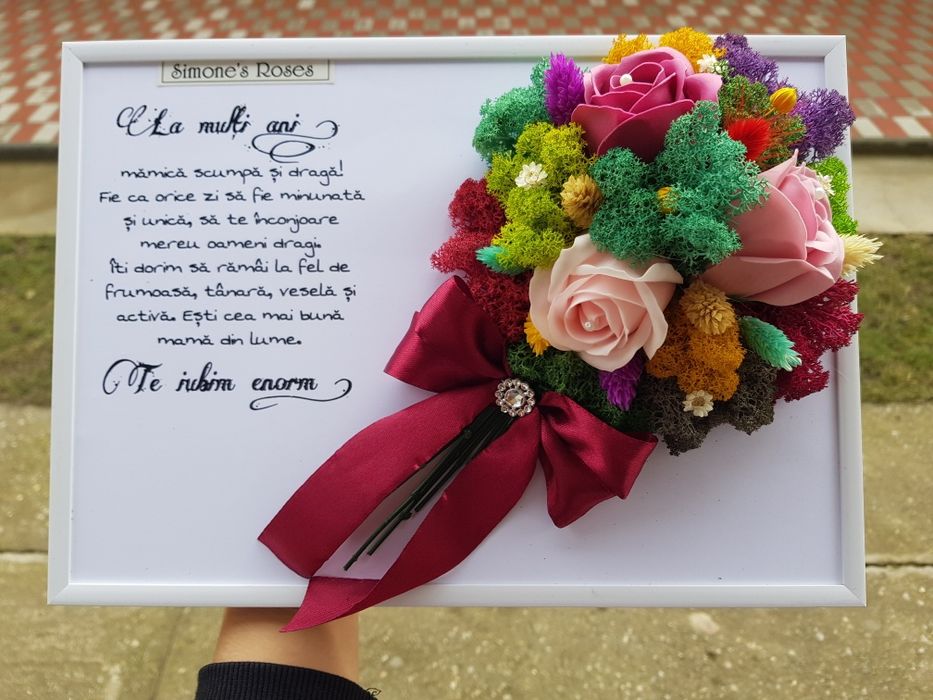 Simone's Roses
La mulți ani
mămică scumpă și dragă!
Fie ca orice zi să fie minunată
și unică, să te înconjoare
mereu oameni dragi.
Îti dorim să rămâi la fel de
frumoasă, tânară, veselă și
activă. Ești cea mai bună
mamă din lume.
Te iubim enorm